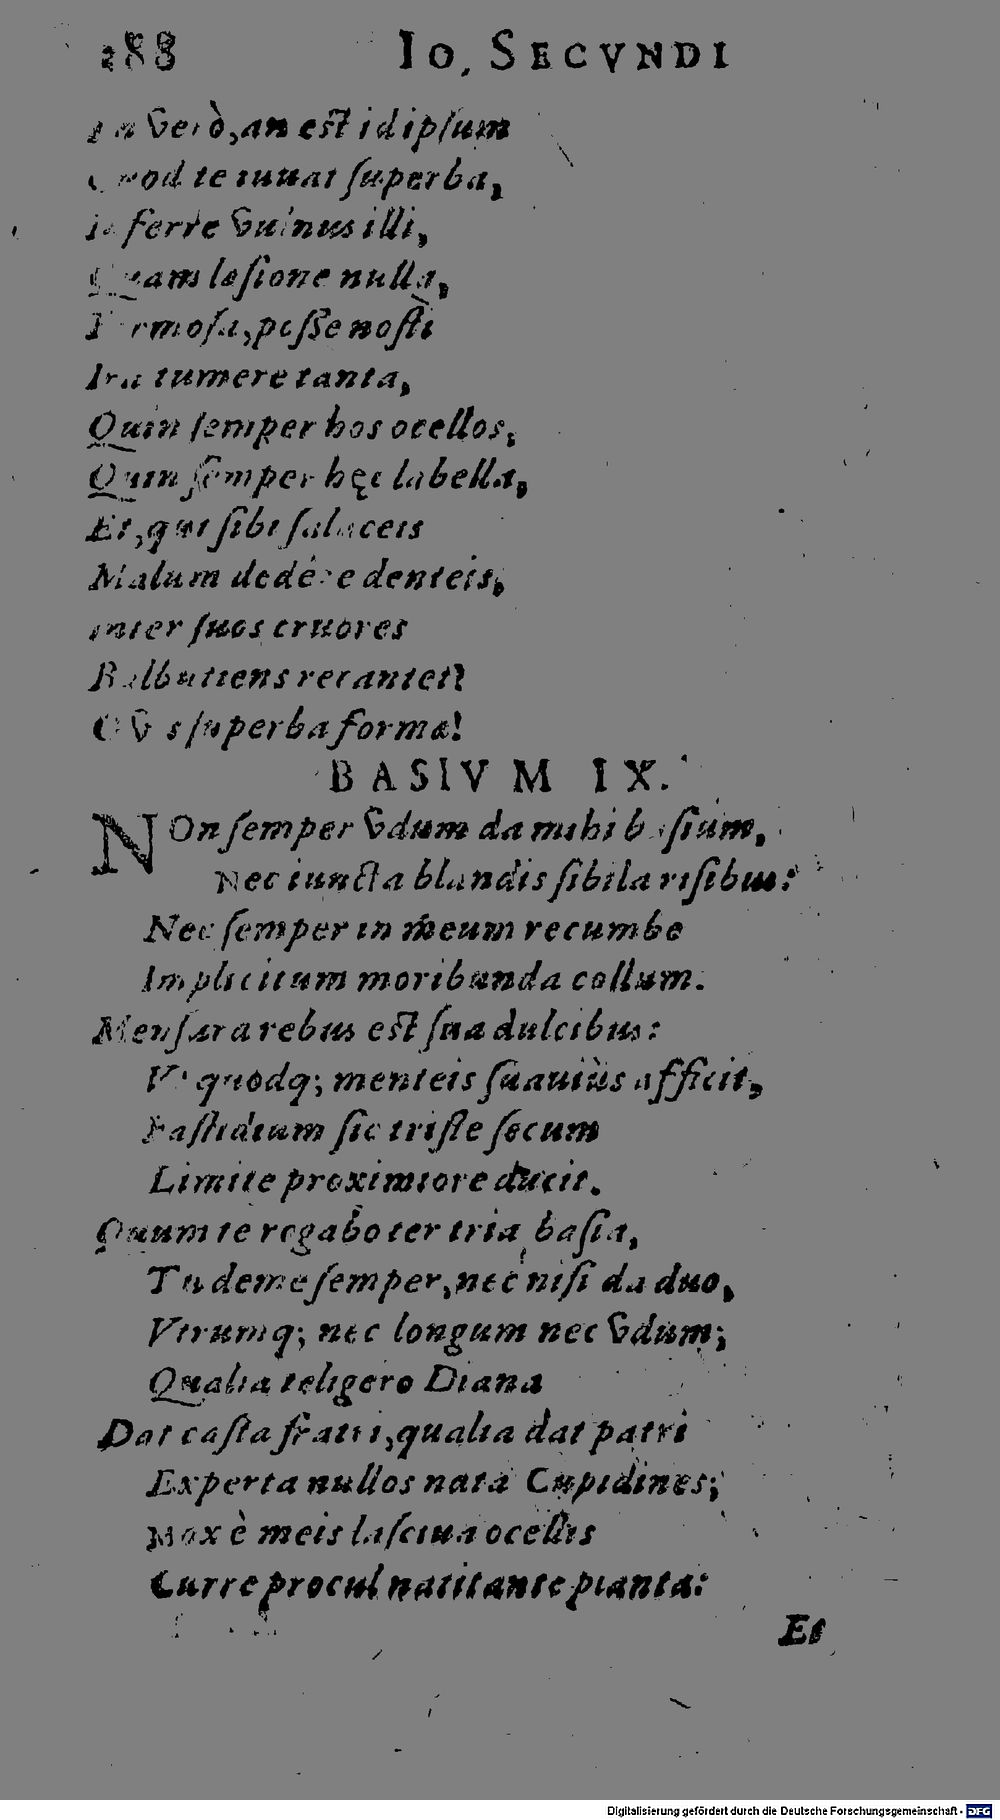 288 Io, SECVNDI
An verò, an eſt id ipſum
Quod te iuuat ſuperba,
Inferre vulnus illi,
Quam læſione nulla,
Formoſa, poſſe noſti
Ira tumere tanta,
Quin ſemper hos ocellos,
Quin ſemper hęc labella,
Et, qui ſibi ſalaceis
Malum dedêre denteis,
Inter ſuos cruores
Balbutiens recantet?
O vis ſuperba formæ!
BASIVM IX.
NOn ſemper vdum da mihi baſium,
Nec iuncta blandis ſibila riſibus:
Nec ſemper in meum recumbe
Implicitum moribunda collum.
Menſura rebus eſt ſua dulcibus:
Vt quodq; menteis ſuauiùs afficit,
Faſtidium ſic triſte ſecum
Limite proximiore ducit.
Quum te rogabo ter tria baſia,
Tu deme ſemper, nec niſi da duo,
Vtrumq; nec longum nec vdum;
Qualia teligero Diana
Dat caſta fratri, qualia dat patri
Experta nullos nata Cupidines;
Mox è meis laſciua ocellis
Curre procul natitante planta:
Et
Digitalisierung gefördert durch die Deutsche Forschungsgemeinschaft - DFG